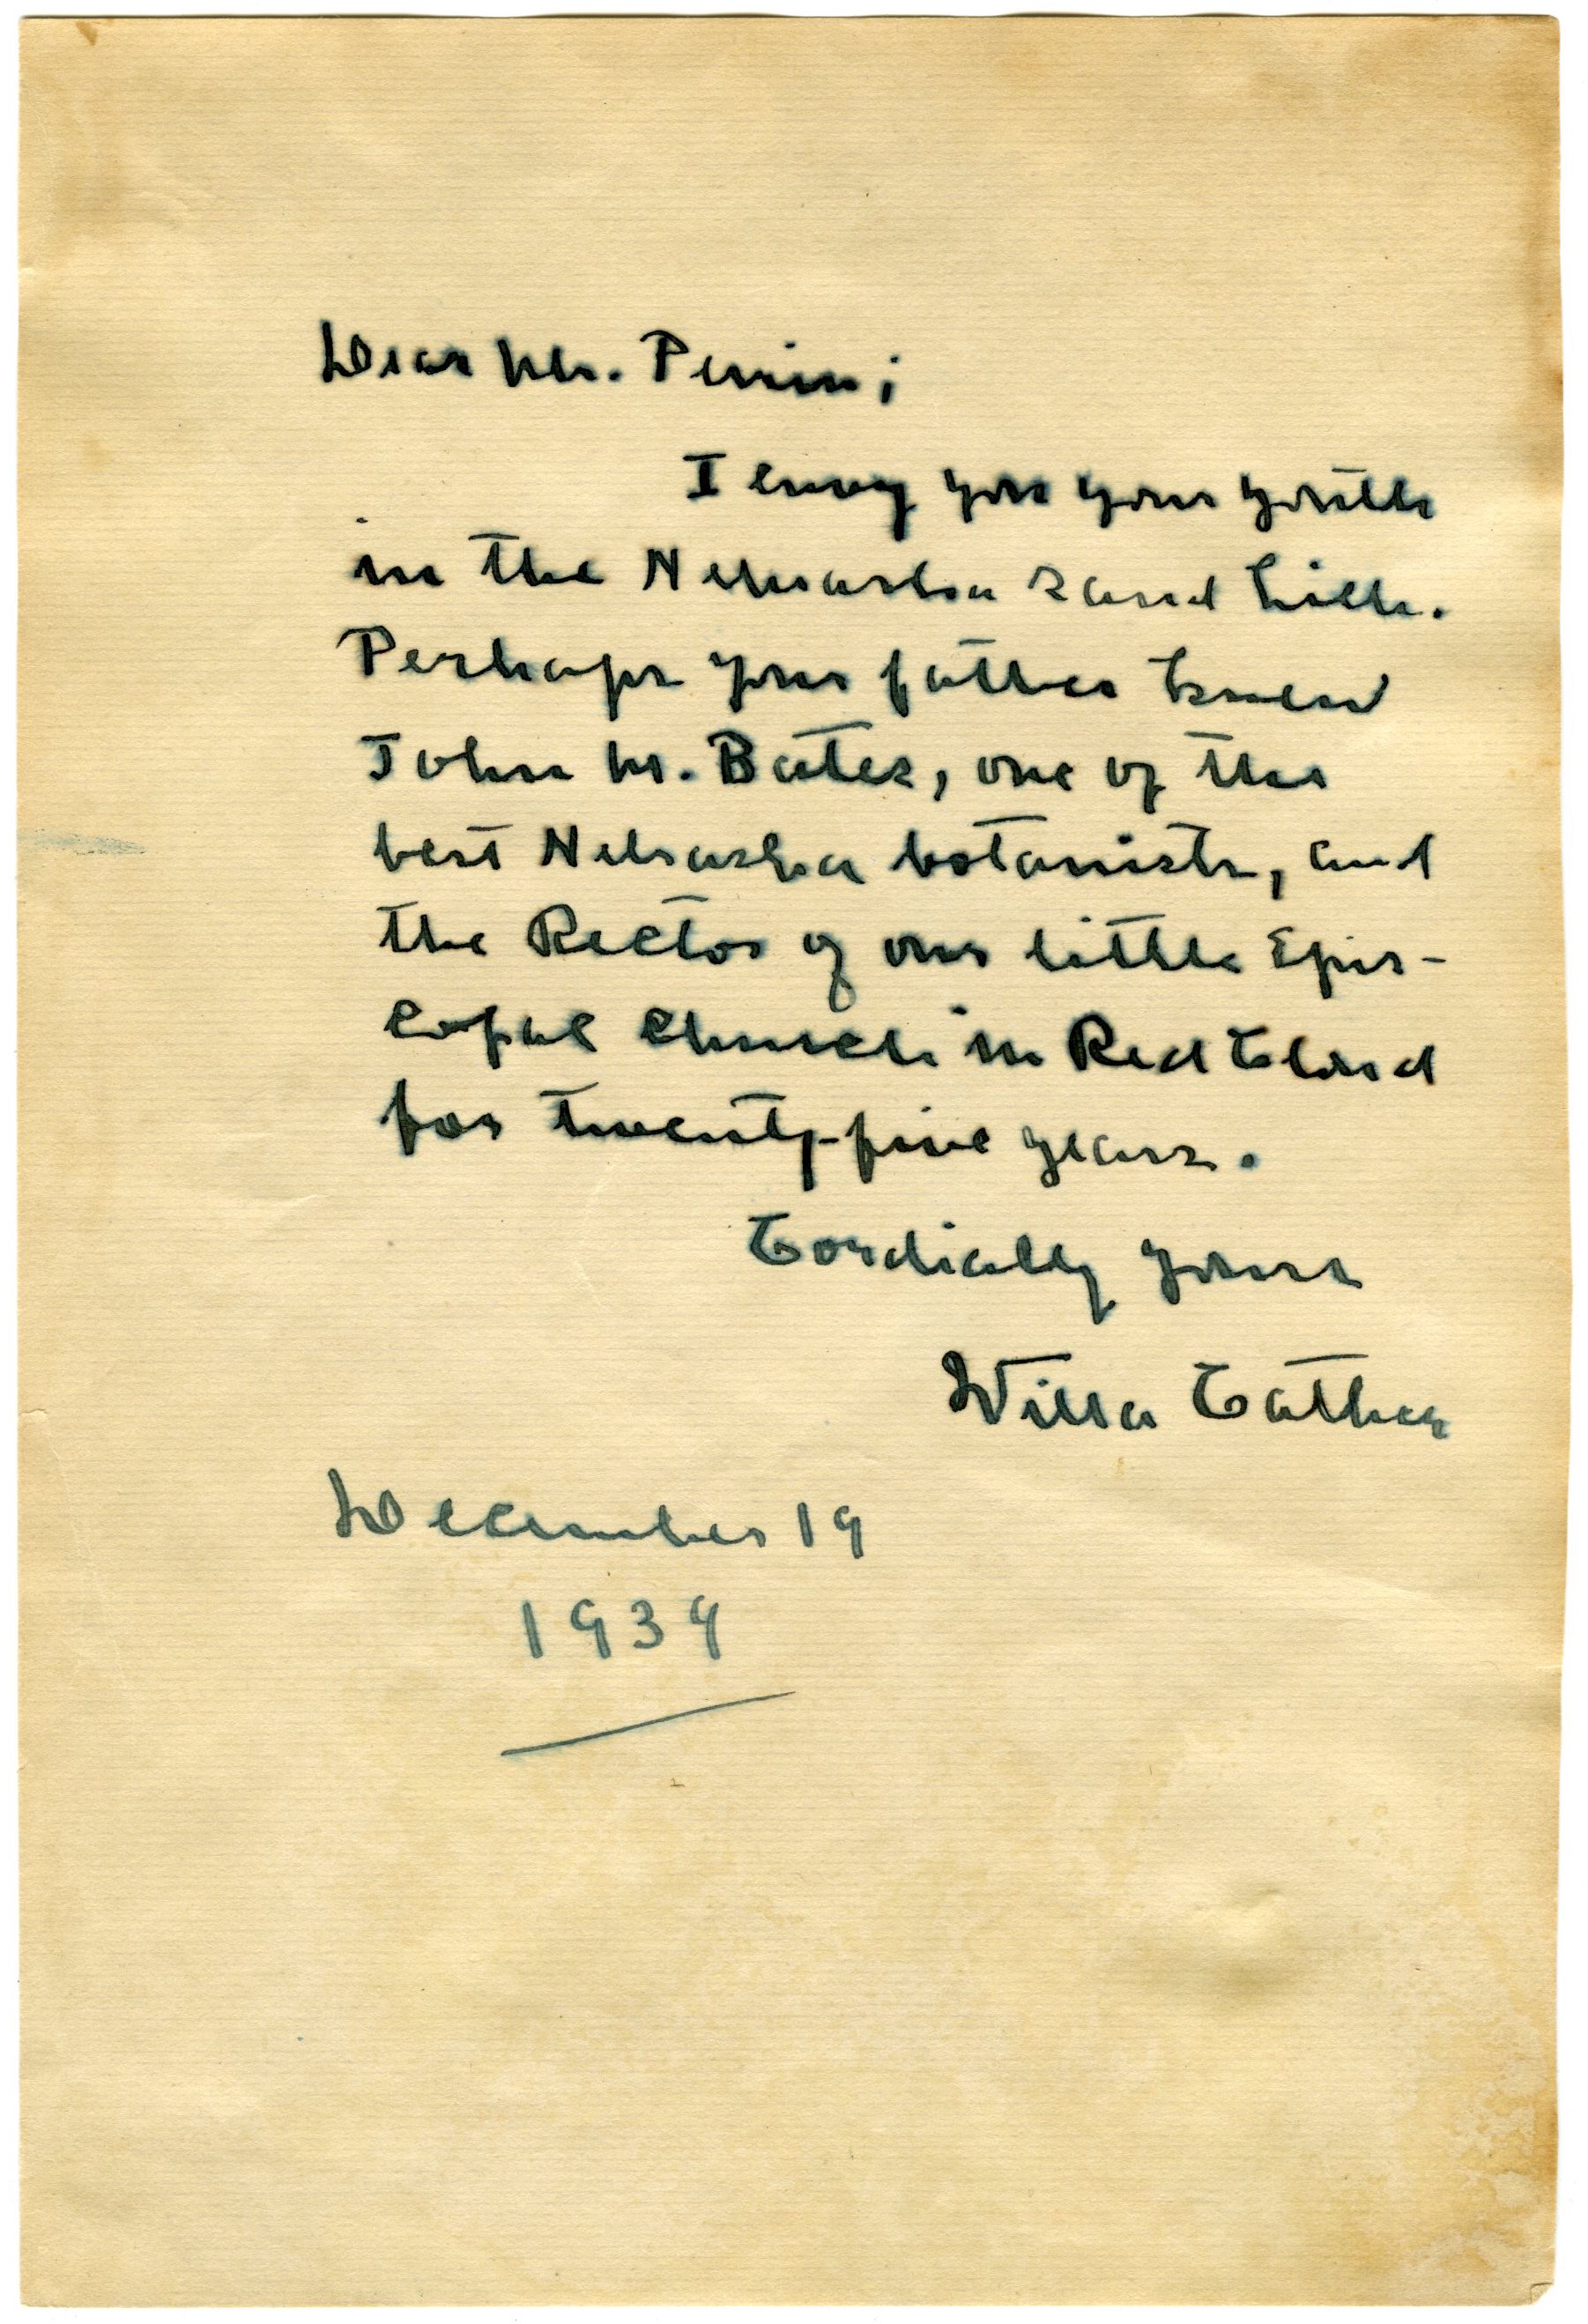 Dear Mr.
I envy you your youth
in the Nebraska sand hills.
Perhaps your father knew
John M. Bates, one of the
best Nebraska botanists, and
the Rector of our little Epis-
copal Church in Red Cloud
for twenty-five years.
Cordially yours
Willa Cather
December 19
1939